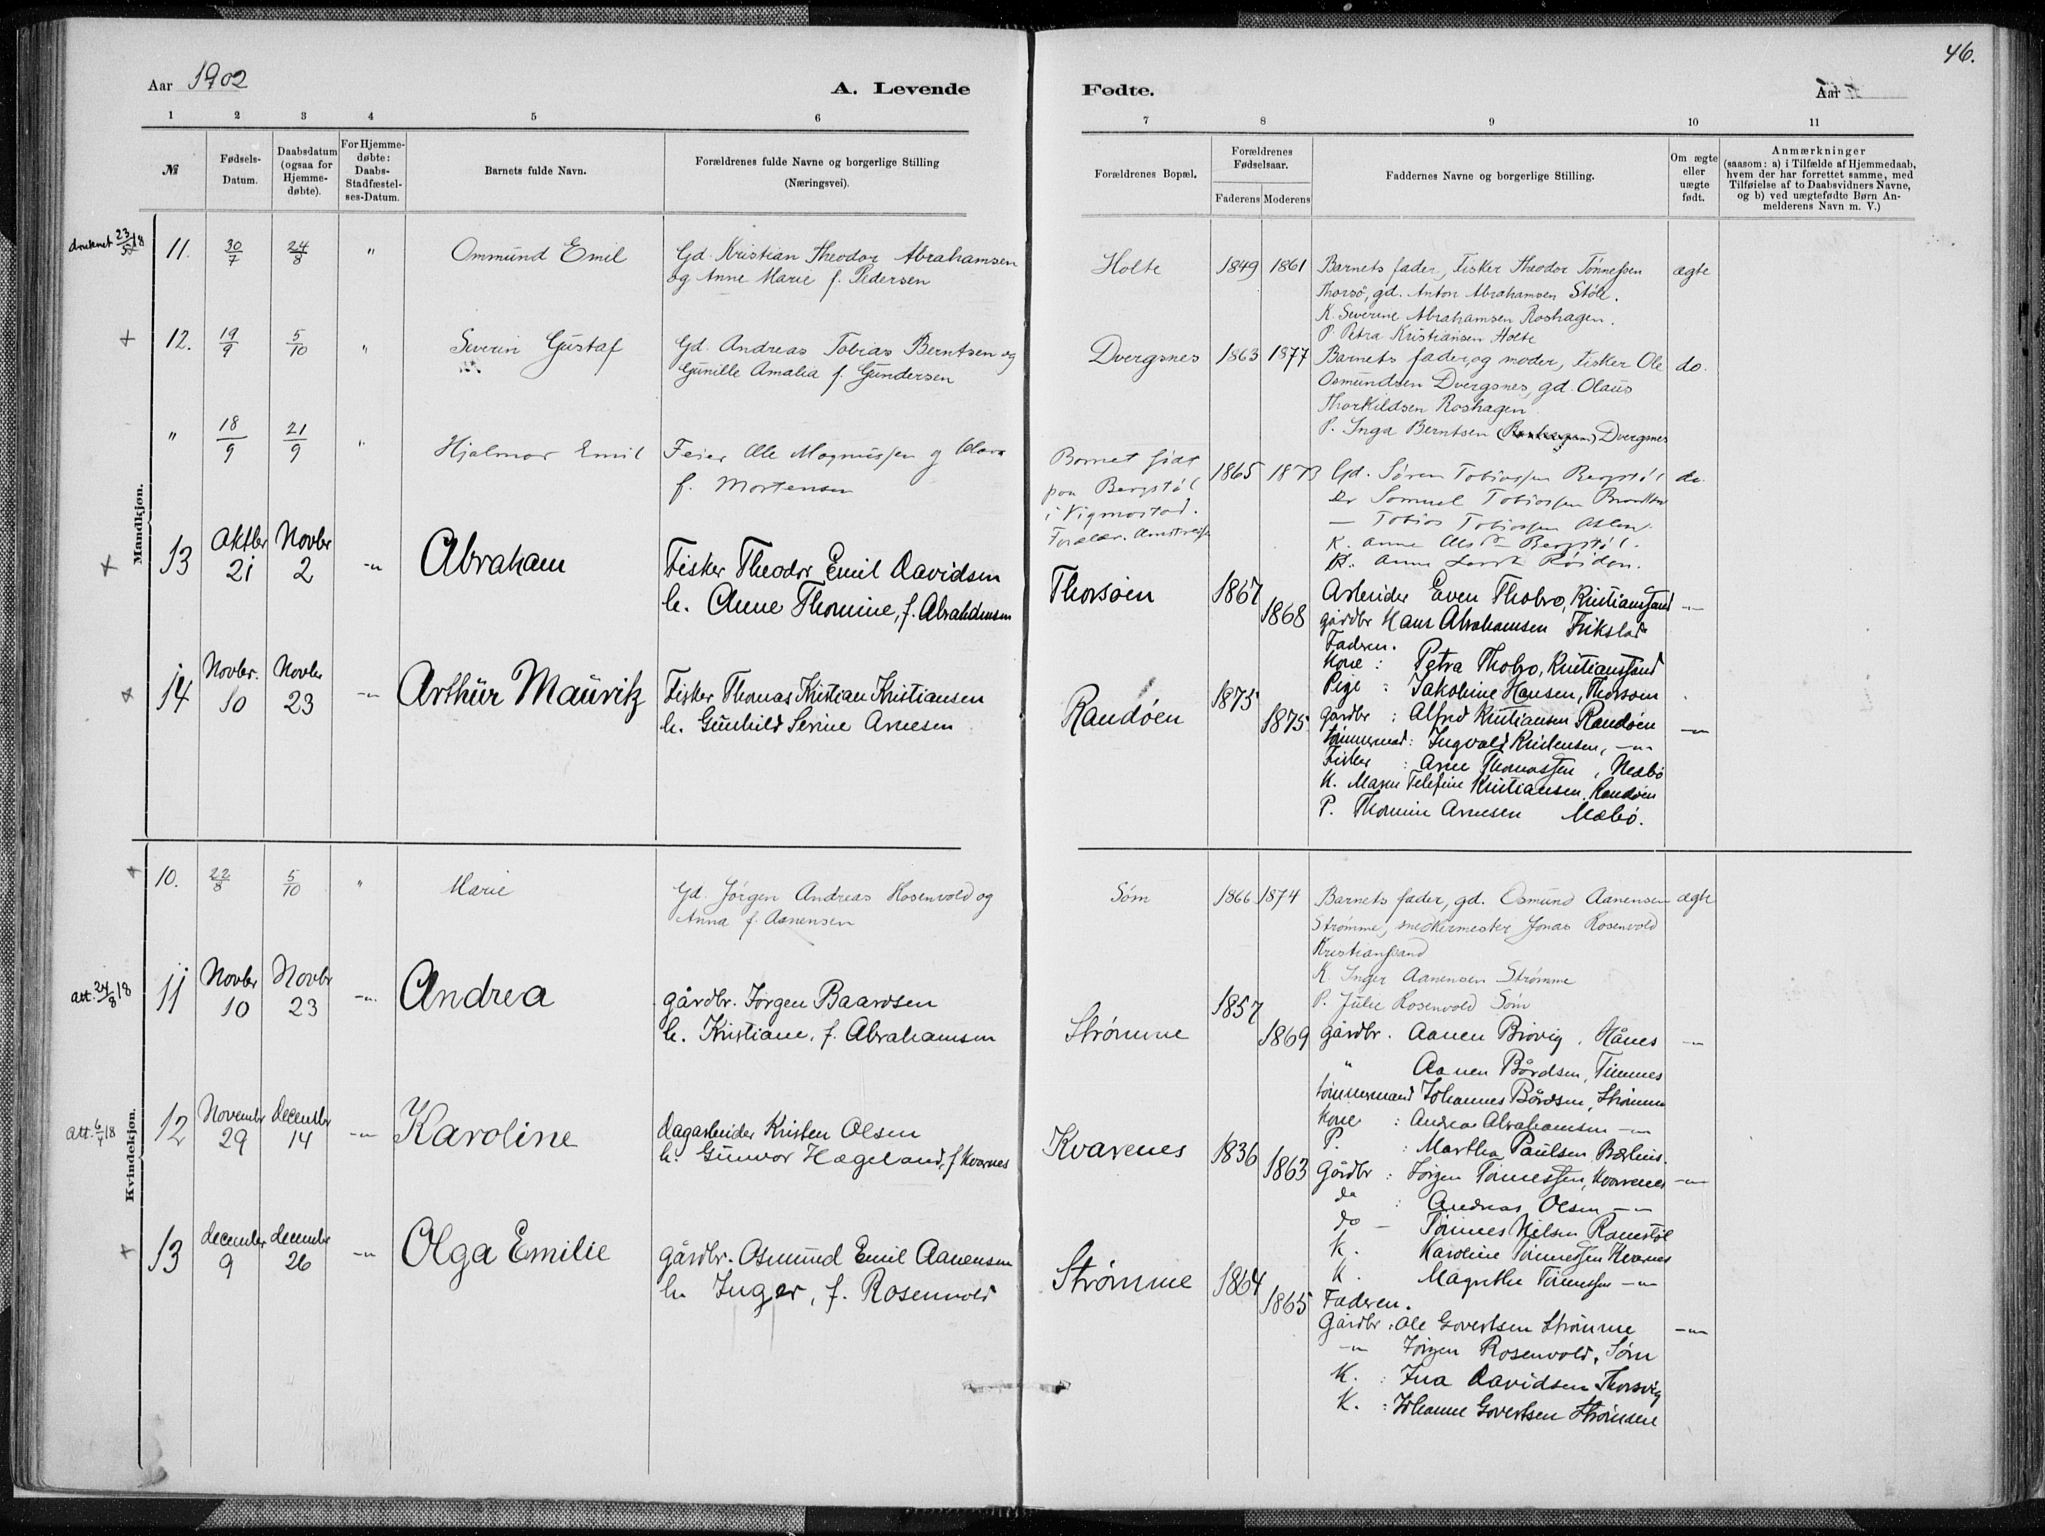 46.
Aar 1902
A. Levende
Fødte.
Aar
1 2 3 4 5 6
7 8 9 10 11
№
Fødsels-
Datum.
Daabsdatum
(ogsaa for
Hjemme-
døbte).
For Hjemme-
døbte:
Daabs-
Stadfæstel-
ses-Datum.
Barnets fulde Navn.
Forældrenes fulde Navne og borgerlige Stilling
(Næringsvei).
Forældrenes Bopæl.
Forældrenes
Fødselsaar.
Faderens Moderens
Faddernes Navne og borgerlige Stilling.
Om ægte
eller
uægte
født.
Anmærkninger
(saasom: a) i Tilfælde af Hjemmedaab,
hvem der har forrettet samme, med
Tilføielse af to Daabsvidners Navne,
og b) ved uægtefødte Børn An-
melderens Navn m. V.)
Mandkjøn.
11. 30/7 24/8 " Ommund Emil
Gd. Kristian Theodor Abrahamsen
og Anne Marie f. Pedersen
Holte 1849 1861
Barnets fader, Fisker Theodor Tønnessen
Thorsø, gd. Anton Abrahamsen Støle.
K. Severine Abrahamsen Roshagen.
P. Petra Kristiansen Holte
ægte
12. 19/9 5/10 " Severin Gustaf
Gd. Andreas Tobias Berntsen og
Gunille Amalia f. Gundersen
Dvergsnes 1863 1877
Barnets fader, og moder, Fisker Ole
Osmundsen Dvergsnes, gd. Olaus
Thorkildsen Roshagen.
P. Inga Berntsen Dvergsnes
do.
" 18/9 21/9 " Hjalmar Emil
Feier Ole Magnussen og Clara
f. Mortensen
Barnet født
paa Bergstøl
i Vigmostad.
1865 1873
Gd. Søren Tobiassen Bergstøl
Samuel Tobiassen
— Tobias Tobiassen
K. Anne Bergstøl.
K. Anne Røiden.
do.
13 Oktbr 21 Novbr 2 -"- Abraham
Fisker Theodor Emil Davidsen
h. Anne Thomine, f. Abrahamsen
Thorsøen 1867 1868
Arbeider Even Thobro, Kristianssand
gårdbr Hans Abrahamsen Frikstad
Faderen.
Kone : Petra Thobro, Kristianssand
Pige : Jakobine Hansen, Thorsøen
-"-
14 Novbr. 10 Novbr 23 -"- Arthur Mauritz
Fisker Thomas Kristian Kristiansen
h. Gunhild Serine Arnesen
Randøen 1875 1875
gårdbr : Alfred Kristiansen Randøen
tømmermd : Ingvald Kristensen, -"-
Fisker : Arne Thomassen, Mæbø
K. Maren Telefine Kristiansen. Randøen
P. Thomine Arnesen Mæbø.
-"-
Kvindekjøn.
10. 22/8 5/10 " Marie
Gd. Jørgen Andreas Rosenvold og
Anna f. Aanensen
Søm 1866 1874
Barnets fader, gd. Osmund Aanensen
Strømme, snedkermester Jonas Rosenvold
Kristianssand
K. Inger Aanensen Strømme
P. Julie Rosenvold Søm
ægte
att. 24/8 18
11 Novbr 10 Novbr 23 -"- Andrea
gårdbr. Jørgen Baardsen
h. Kristiane, f. Abrahamsen
Strømme 1857 1869
gårdbr. Aanen Brøvig, Hånes
" Aanen Bårdsen, Timenes
tømmermand Johannes Bårdsen, Strømme
Kone : Andrea Abrahamsen -"-
P. : Martha Paulsen
-"-
att. 6/7 18
12 November 29 december 14 -"- Karoline
dagarbeider Kristen Olsen
h. Gunvor Hægeland, f Kvarnes
Kvarenes 1836 1863
Gårdbr : Jørgen Tønnessen, Kvarenes
do : Andreas Olsen -"-
do - Tønnes Nilsen
K. Karoline Tønnessen Kvarenes
K. Magrethe Tønnessen -"-
-"-
13 december 9 december 26 -"- Olga Emilie
gårdbr. Osmund Emil Aanensen
h. Inger, f. Rosenvold
Strømme 1864 1865
Faderen.
Gårdbr : Ole Govertsen Strømme
-"- Jørgen Rosenvold, Søm
K. : Ina Davidsen Thorsvig
K. : Johanne Govertsen Strømme
-"-